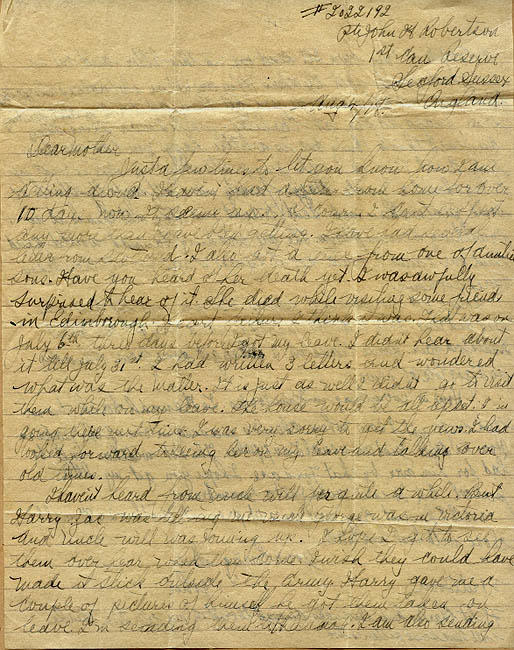 #2022192
Pte John H Robertson
1st Can Reserve
Seaford Sussex
England.
Aug 2/18.
Dear mother
Just a few lines to let you know how I am
getting along. I haven't had a letter from home for over
10 days now. It seems
any more than I have been getting. I have had several
letter from . I also got a one from one of aunties
sons. Have you heard of her death yet. I was awfully
surprised to hear of it. She died while visiting some friends
in Edinborough. I think it was. That was on
July 6th three days before I got my leave. I didn't hear about
it till July 31st. I had written 3 letters and wondered
what was the matter. It is just as well I didn't go to visit
them while on my leave. The house would be all upset. I'm
going there next time. I was very sorry to get the news. I had
looked forward to seeing her on my leave and talking over
old times.
I haven't heard from uncle will for quite a while. But
Harry was telling me that George was in Victoria
and Uncle will was joining up. I hope I get to see
them over hear when they come. I wish they could have
made it stick outside the army. Harry gave me a
couple of pictures of he got them taken on
leave. I'm sending them . I am also sending